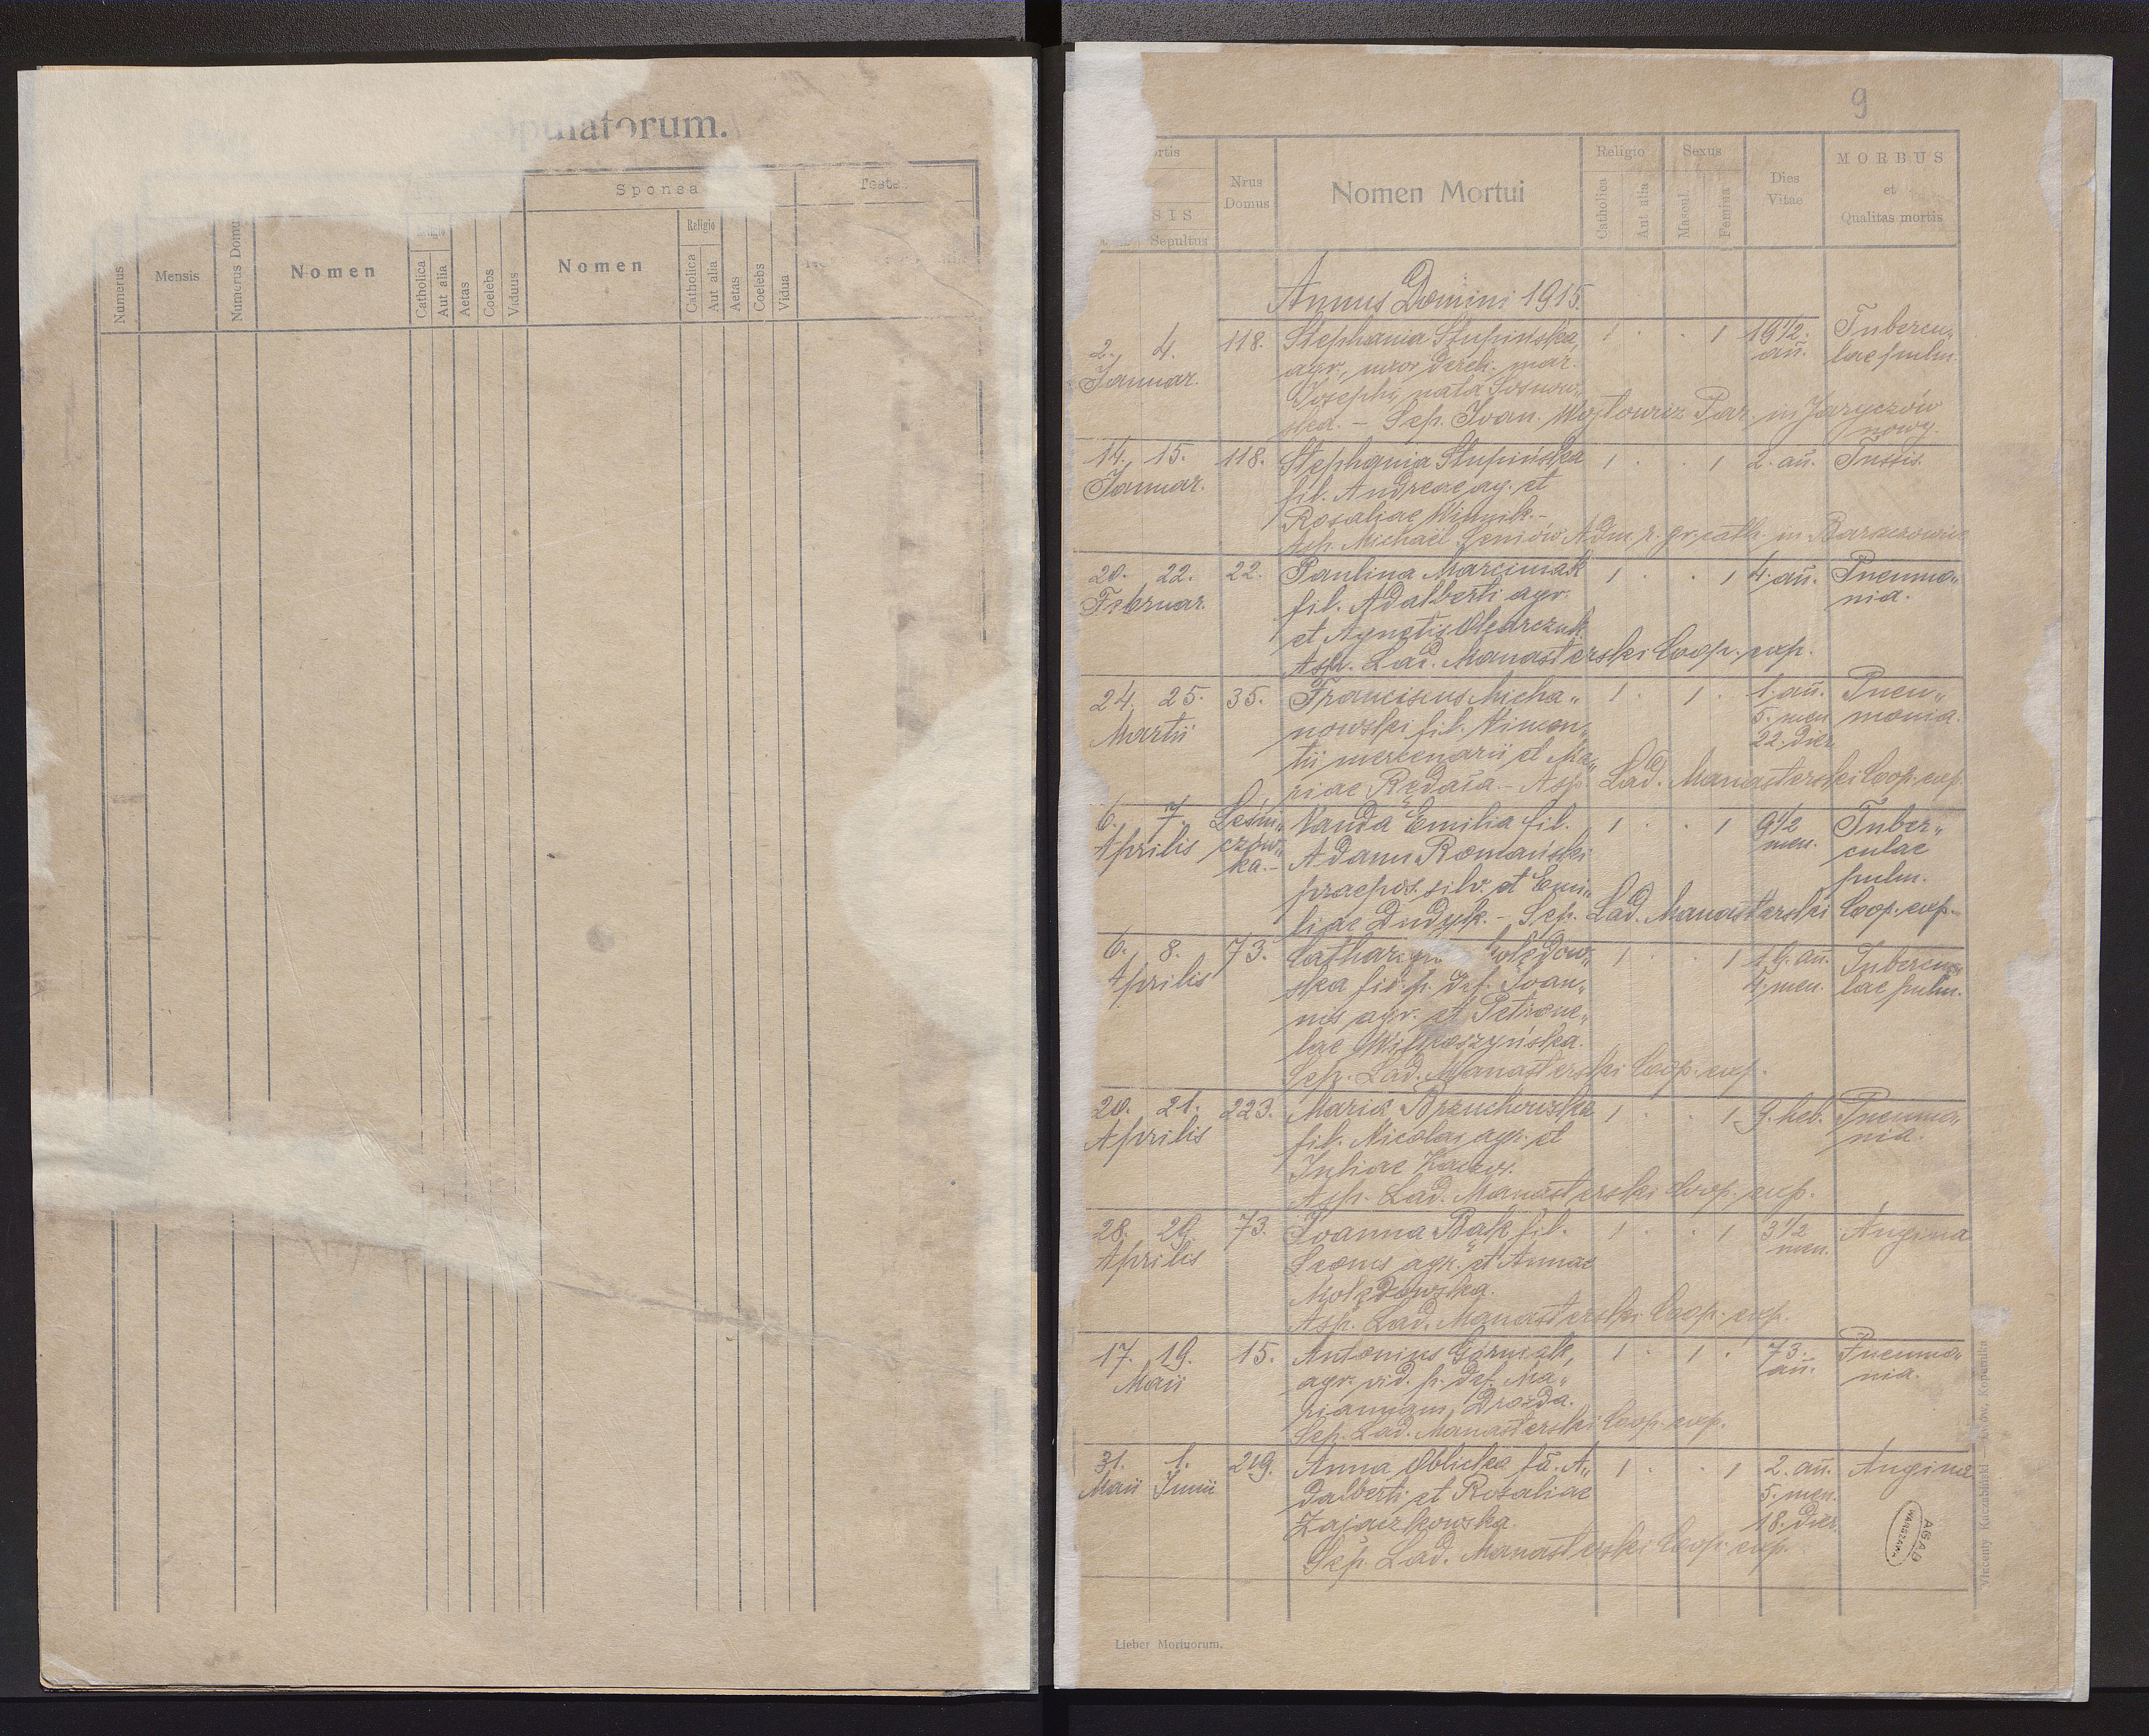 opulatorum.
Sponsa
Testes
Numerus
Mensis
Numerus Domus
Nomen
Religio
Catholica
Aut alia
Aetas
Coelebs
Viduus
Nomen
Religio
Catholica
Aut alia
Aetas
Coelebs
Vidua
9
ortis
SIS
Sepultus
Nrus Domus
Nomen Mortui
Religio
Catholica
Aut alia
Sexus
Mascul.
Femina
Dies Vitae
MORBUS
et
Qualitas mortis
Annus Domini 1915
2. 4. 118. Stephania Stupińska, 1 · · 1 19 1/2 Tubercu„
Januar. agr., uxor derel. mar. añ. lae pulm.
Josephi, nata Sosnow„
ska. – Sep. Joan. Wojtowicz Par. in Jaryczów
nowy.
14. 15. 118. Stephania Stupińska 1 · · 1 2. añ. Tussis.
Januar. fil. Andreae ag. et
Rosaliae Winnik. –
Asp. Michaël Seniów Adm. r. gr. cath. in Barszczowice
20. 22. 22. Paulina Marciniak 1 · · 1 4. añ. Pneumo„
Februar. fil. Adalberti agr. nia.
et Agnetis Olearczuk.
Asp. Lad. Manasterski Coop. exp.
24. 25. 35. Franciscus Micha„ 1 · 1 · 1. añ. Pneu„
Martii nowski fil. Vincen„ 5. men. monia.
tii mercenarii et Ma„ 22. dier.
riae Rędasa. – Asp. Lad. Manasterski Coop. exp.
6. 7. Leśni„ Vanda Emilia fil. 1 · · 1 9 1/2 Tuber„
Aprilis czów„ Adami Romański men. culae
ka. – praepos. silv. et Emi„ pulm.
liae Dudyk. – Sep. Lad. Manasterski Coop. exp.
6. 8. 73. Cathar 1 · · 1 19. añ. Tubercu„
Aprilis ska fil. p. def. Joan„ 4. men. lae pulm.
nis agr. et Petrone„
lae
Sep. Lad. Manasterski Coop. exp.
20. 21. 223. Maria Brzuchowska 1 · · 1 9. heb. Pneumo„
Aprilis fil. Nicolai agr. et nia.
Juliae
Asp. Lad. Manasterski Coop. exp.
28. 29. 73. Joanna Bąk fil. 1 · · 1 3 1/2 Angina
Aprilis Leonis agr. et Annae men.
Molędowska.
Asp. Lad. Manasterski Coop. exp.
17. 19. 15. Antonius Górniak, 1 · 1 · 73. Pneumo„
Maii agr. vid. p. def. Ma„ añ. nia.
riannam Drozda.
Sep. Lad. Manasterski Coop. exp.
31. 1. 219. Anna Oblicka fa. A„ 1 · · 1 2. añ. Angina
Maii Junii dalberti et Rosaliae 5. men.
Zajączkowska. 18. dier.
Sep. Lad. Manasterski Coop. exp.
AGAD
WARSZAWA
Lieber Mortuorum.